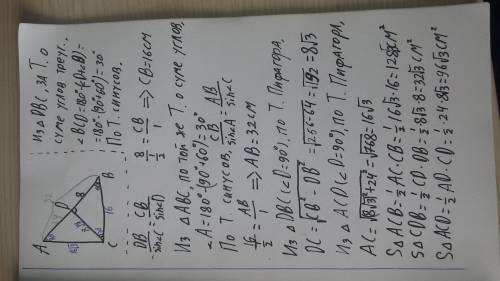 Из △DBC, за Т. о
суме углов треуг.
∠BCD=180°-(D+B)=
=180°-(90°+60°)=30°
По Т. синусов.
DB/sinC = CB/sinD
8/(1/2) = CB/1 => CB=16см
Из △ABC, по той же Т. о суме углов.
∠A=180°-(90°+60°)=30°
По Т. синусов, CB/sinA = AB/sinC
16/(1/2) = AB/1 => AB=32см
Из △DBC(∠D=90°), по Т. Пифагора,
DC=√CB²-DB²=√256-64=√192=8√3
Из △ACD(∠D=90°), по Т. Пифагора,
AC=√(8√3)²+24²=√768=16√3
S△ACB=1/2AC·CB=1/2 16√3·16=128√3см²
S△CDB=1/2CD·DB=1/2·8√3·8=32√3см²
S△ACD=1/2AD·CD=1/2·24·8√3=96√3см²
A
D
8
B
16
C